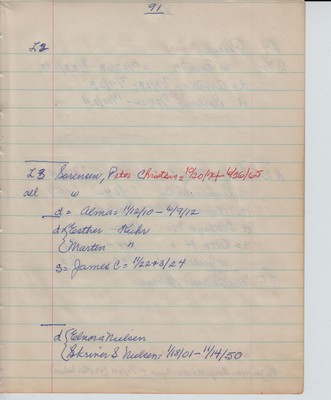 91
L2
L3 Sorensen, Peter Christian = 10/20/74 - 4/26/65
all w
d = Alma = 11/12/10 - 6/9/12
d { Esther Kuhr
{ Marten "
s = James C = 11/22 + 3/24
d { Elnora Nielsen
{ Eskriner S Nielsen = 1/18/01 - 11/14/50